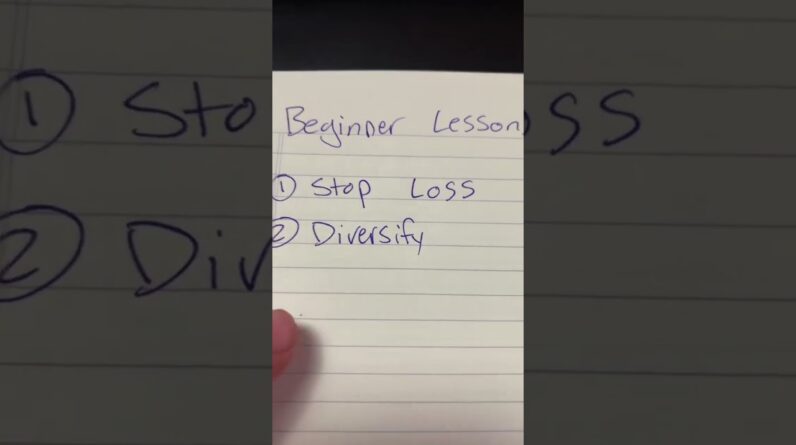 Beginner Lesson
① Stop Loss
② Diversify